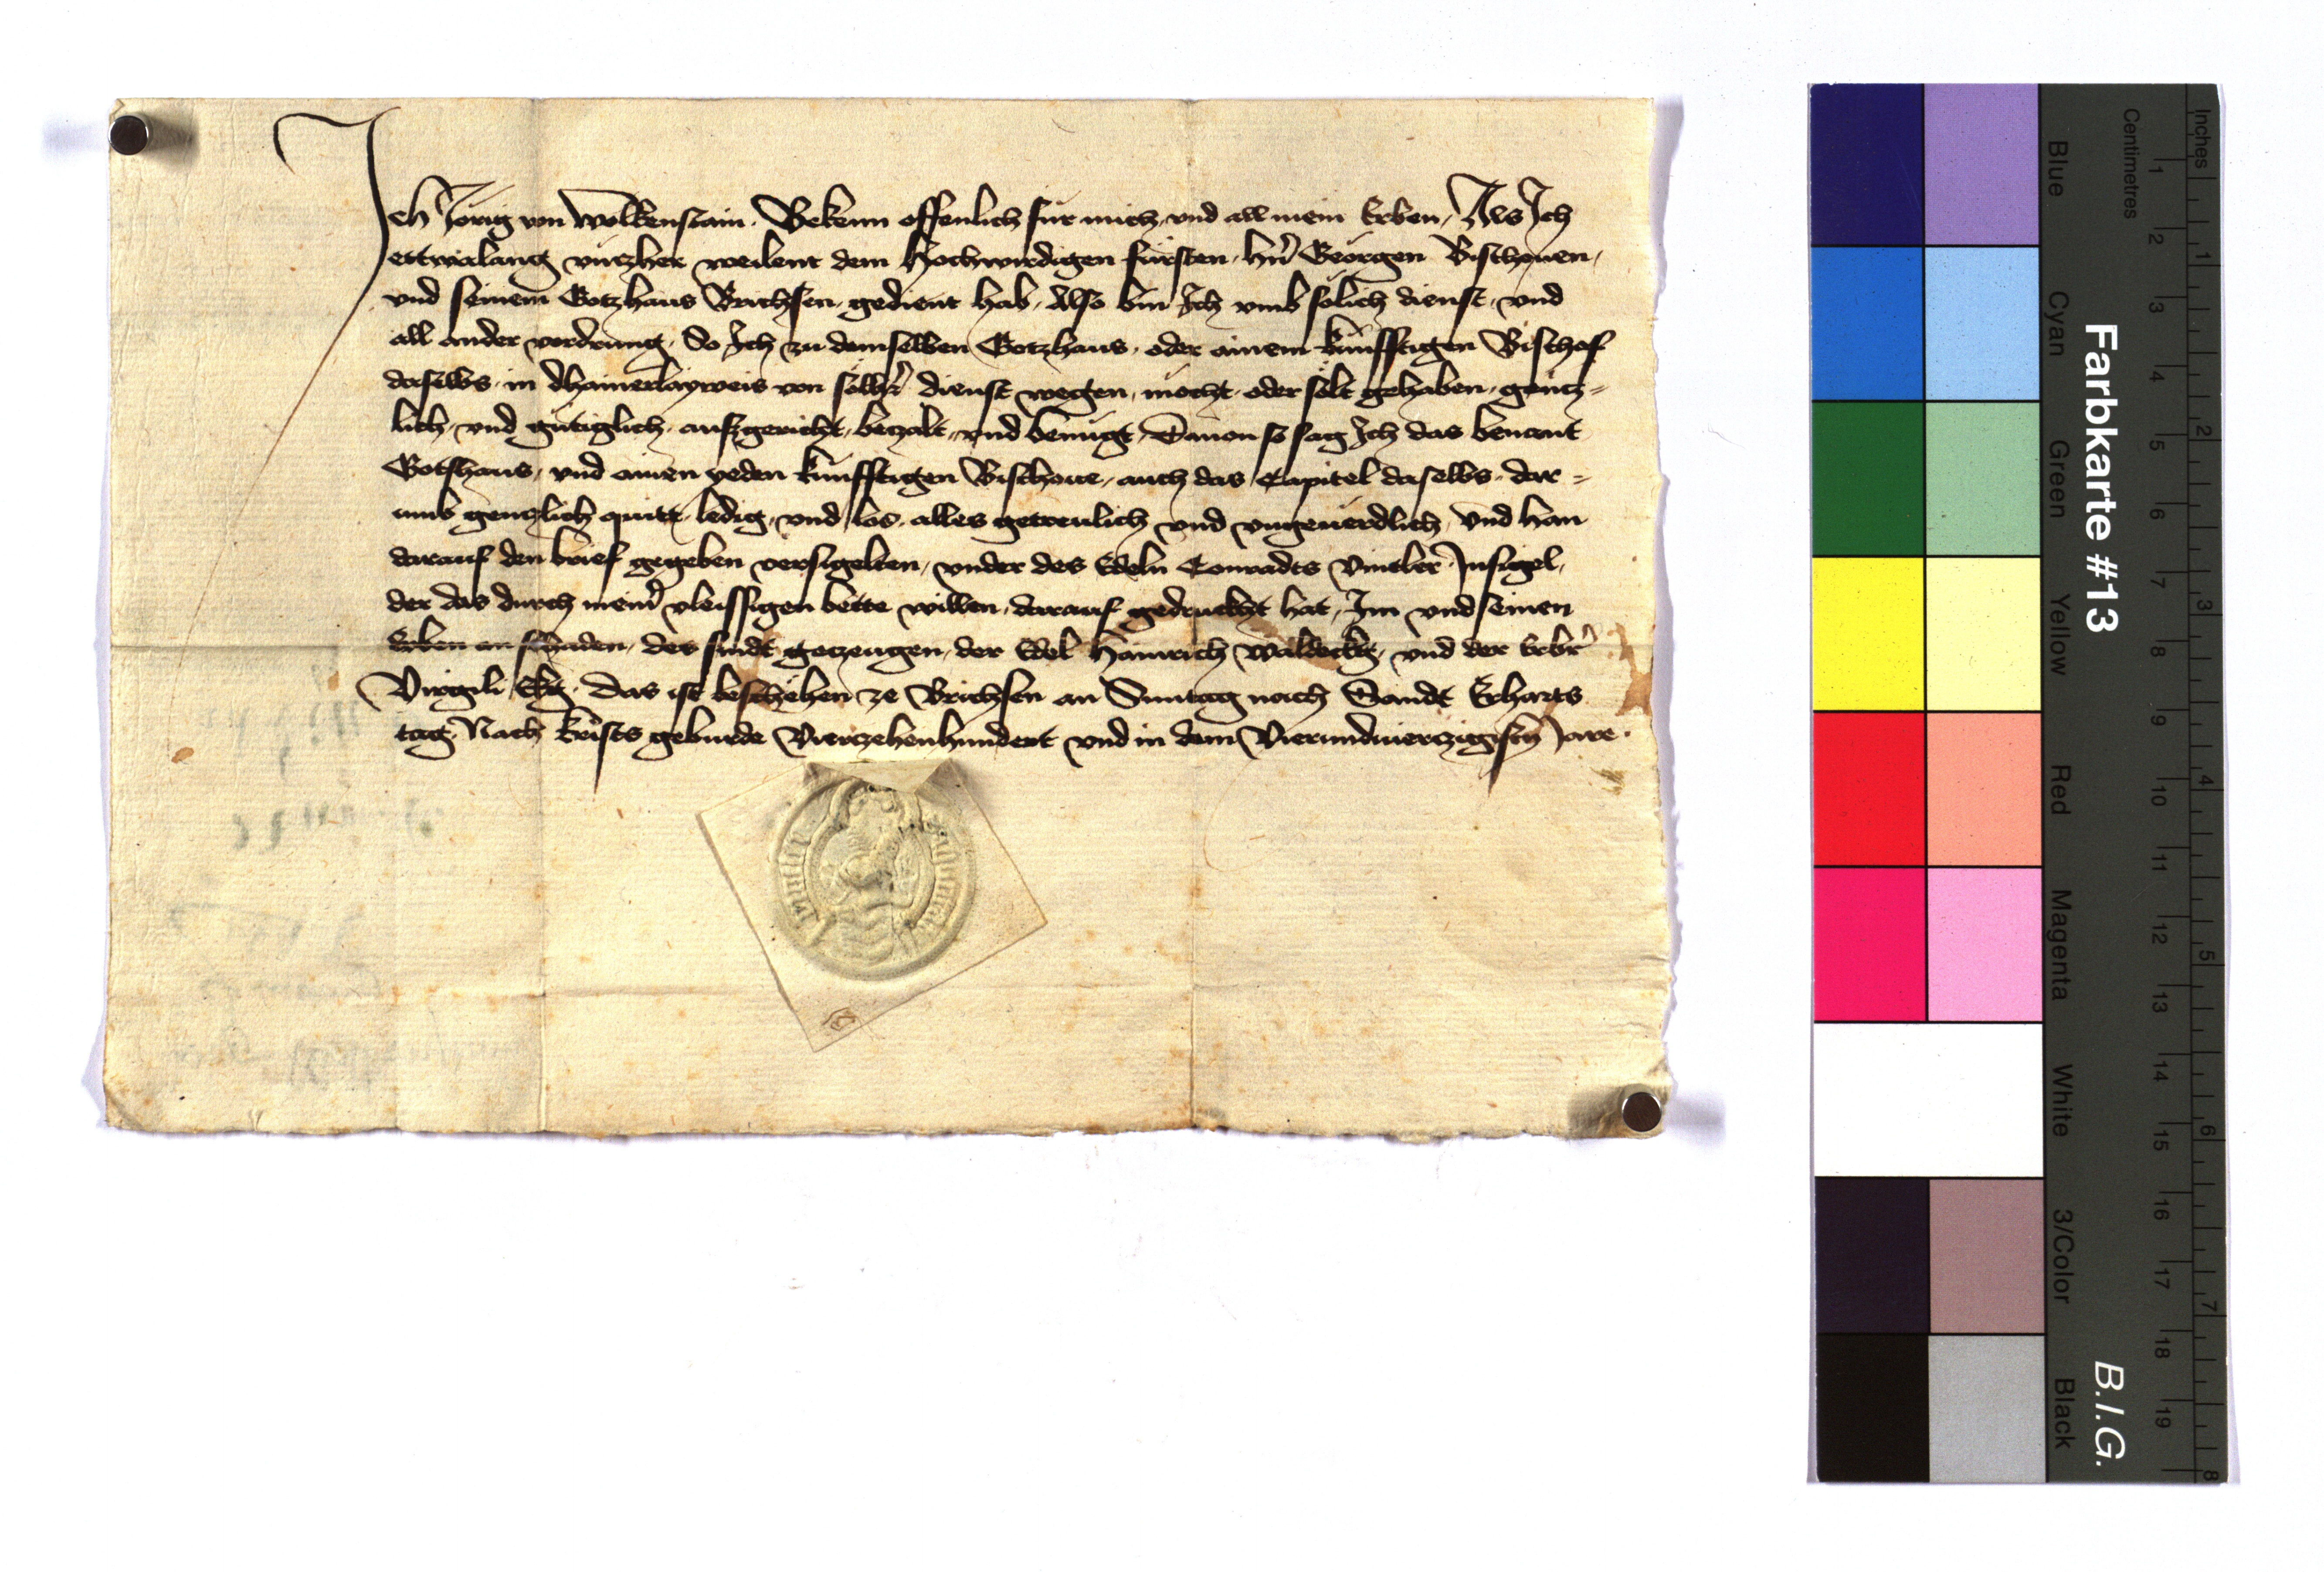 Ich Jorig von Wolkenstain. Bekenn offenlich für mich, vnd all mein Erben, Als Ich
ettwielang vntzher weilent dem Hochwirdigen fürsten, hn̄ Georgen Bischouen,
vnd seinem Gotzhaus Brichsen, gedient hab, Also bin Ich vmb sölich dienst, vnd
all ander vordrung, So Ich zu demselben Gotzhaus, oder ainem künfftigen Bischof
daselbs, in dhainerlayweis von sölhr̄ dienst wegen, mocht, oder solt gehaben, gentz=
lich, vnd gütiglich, ausgericht, betzalt, vnd benügt, Dauon so sag Ich das benant
Gotshaus, vnd ainen yeden künfftigen Bischoue, auch das Capitel daselbs, dar=
umb gentzlich quitt, ledig, vnd los, alles getreulich vnd vngeuerdlich, Vnd han
darauf den brief gegeben versigelten, vnder des Edeln Conradts Vintler Insigel,
der das durch meinr̄ vleissigen bette willen, darauf gedruckht hat, Im vnd seinen
Erben an schaden, des sindt getzeugen, der Edel Hainrich Waldeckh, vnd der Erbr̄
Virgili Ekg, Das ist beschehen ze Brichsen an Suntag nach Sandt Erharts
tag, Nach krists geburde Viertzehenhundert vnd in dem Vierundviertzigistn̄ Jare.
Farbkarte #13
B.I.G.
Centimetres
Inches
Blue
Cyan
Green
Yellow
Red
Magenta
White
3/Color
Black
1 2 3 4 5 6 7 8 9 10 11 12 13 14 15 16 17 18 19
1 2 3 4 5 6 7 8